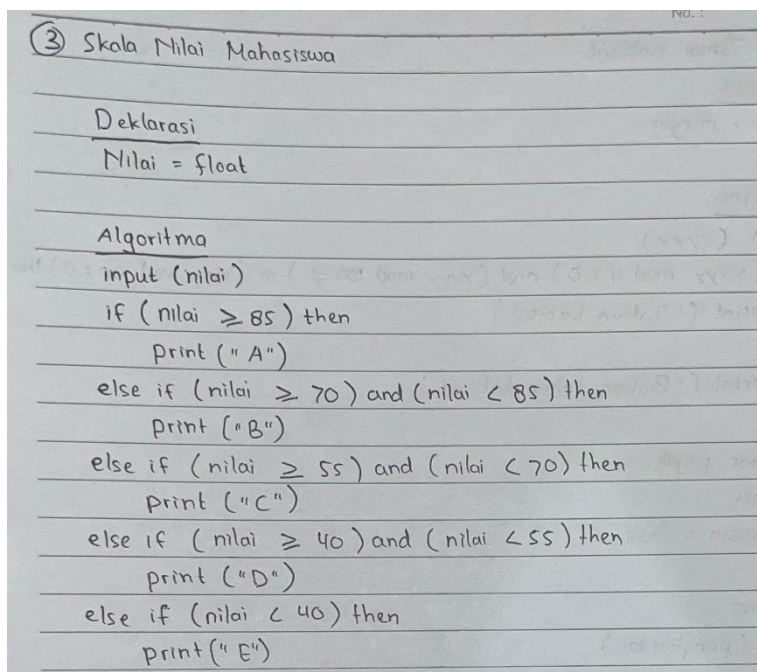 No. :
③ Skala Nilai Mahasiswa
Deklarasi
Nilai = float
Algoritma
input (nilai)
if (nilai ≥ 85) then
print ("A")
else if (nilai ≥ 70) and (nilai < 85) then
print ("B")
else if (nilai ≥ 55) and (nilai < 70) then
print ("C")
else if (nilai ≥ 40) and (nilai < 55) then
print ("D")
else if (nilai < 40) then
print ("E")